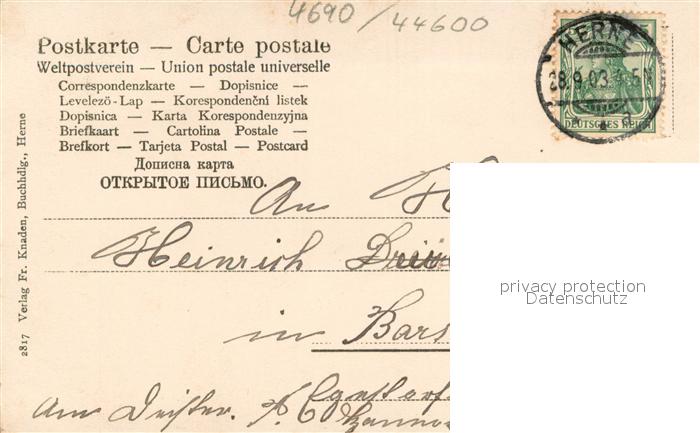 4690/44600
Postkarte — Carte postale
Weltpostverein — Union postale universelle
Correspondenzkarte — Dopisnice —
Levelező-Lap — Korespondenční listek
Dopisnica — Karta Korespondenzyjna
Briefkaart — Cartolina Postale —
Brefkort — Tarjeta Postal — Postcard
Дописна карта
ОТКРЫТОЕ ПИСЬМО.
HERNE
28.9.03
DEUTSCHES REICH
An H
Heinrich
in Bars
Am Deister.
2817 Verlag Fr. Knaden, Buchhdlg., Herne
privacy protection
Datenschutz